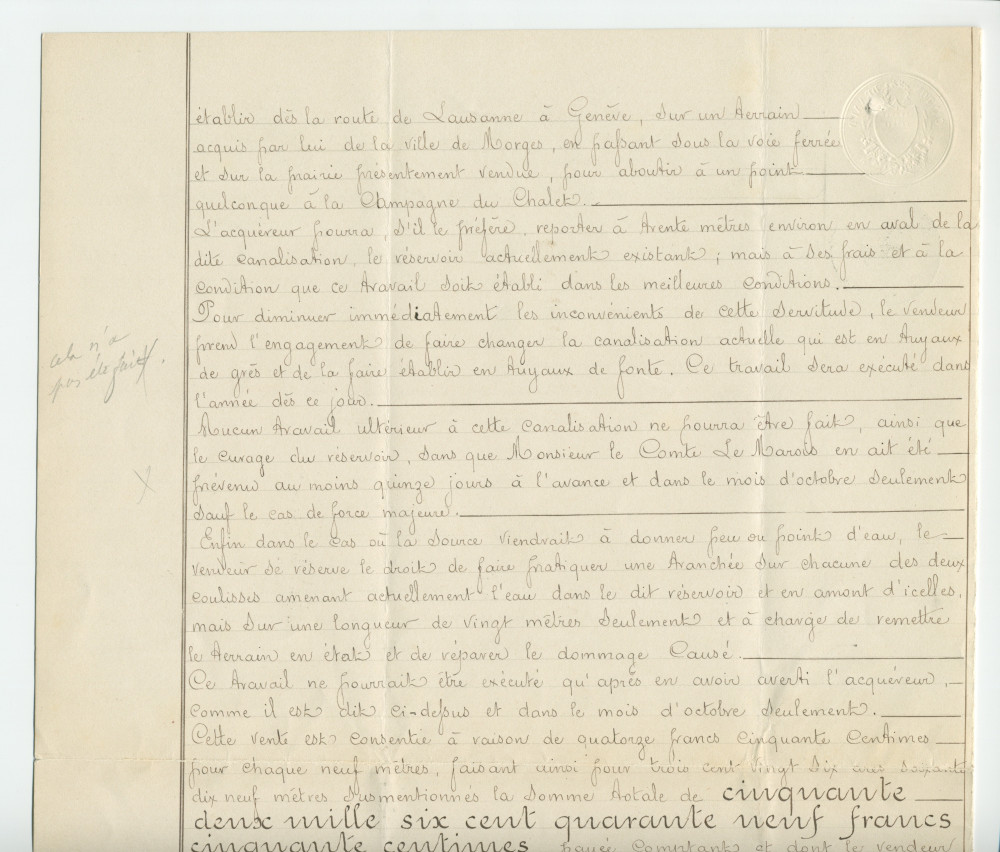 établir dès la route de Lausanne à Genève, sur un terrain
acquis par lui de la ville de Morges, en passant sous la voie ferrée
et sur la prairie présentement vendue, pour aboutir à un point
quelconque à la Campagne du Chalet.
L'acquéreur pourra, s'il le préfère, reporter à trente mètres environ en aval de la
dite canalisation, le réservoir actuellement existant ; mais à ses frais et à la
condition que ce travail soit établi dans les meilleures conditions.
Pour diminuer immédiatement les inconvénients de cette servitude, le vendeur
cela n'a
prend l'engagement de faire changer la canalisation actuelle qui est en tuyaux
pas été fait.
de grès et de la faire établir en tuyaux de fonte. Ce travail sera exécuté dans
l'année dès ce jour.
Aucun travail ultérieur à cette canalisation ne pourra être fait, ainsi que
le curage du réservoir, sans que Monsieur le Comte Le Marois en ait été
X
prévenu au moins quinze jours à l'avance et dans le mois d'octobre seulement
sauf le cas de force majeure.
Enfin dans le cas où la source viendrait à donner peu ou point d'eau, le
vendeur se réserve le droit de faire pratiquer une tranchée sur chacune des deux
coulisses amenant actuellement l'eau dans le dit réservoir et en amont d'icelles,
mais sur une longueur de vingt mètres seulement et à charge de remettre
le terrain en état et de réparer le dommage causé.
Ce travail ne pourrait être exécuté qu'après en avoir averti l'acquéreur,
comme il est dit ci-dessus et dans le mois d'octobre seulement.
Cette vente est consentie à raison de quatorze francs cinquante centimes
pour chaque neuf mètres, faisant ainsi pour trois cent vingt six ares soixante
dix neuf mètres susmentionnés la somme totale de cinquante
deux mille six cent quarante neuf francs
cinquante centimes payée comptant et dont le vendeur